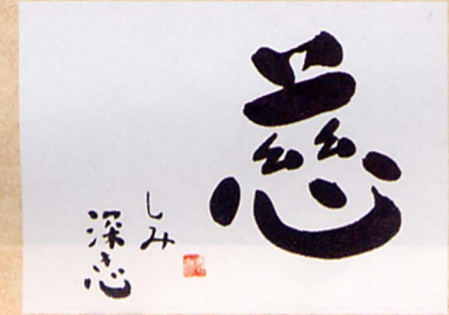 慈
しみ
深き心